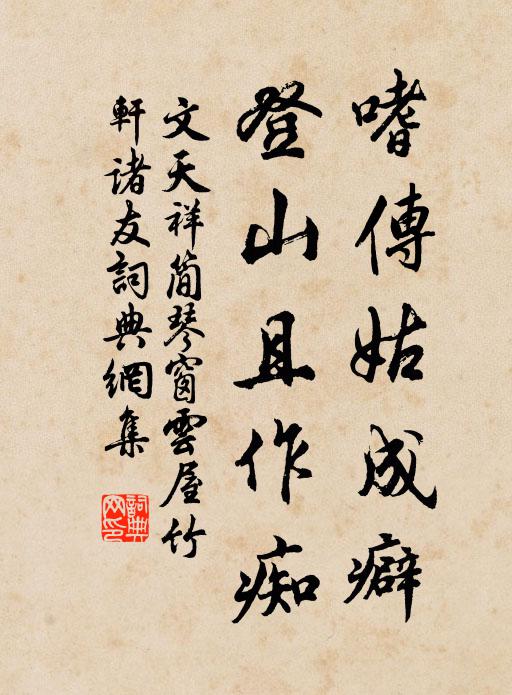 嗜傳姑成癖
登山且作痴
文天祥簡琴窗雲屋竹
軒諸友詞典網集
詞典網印